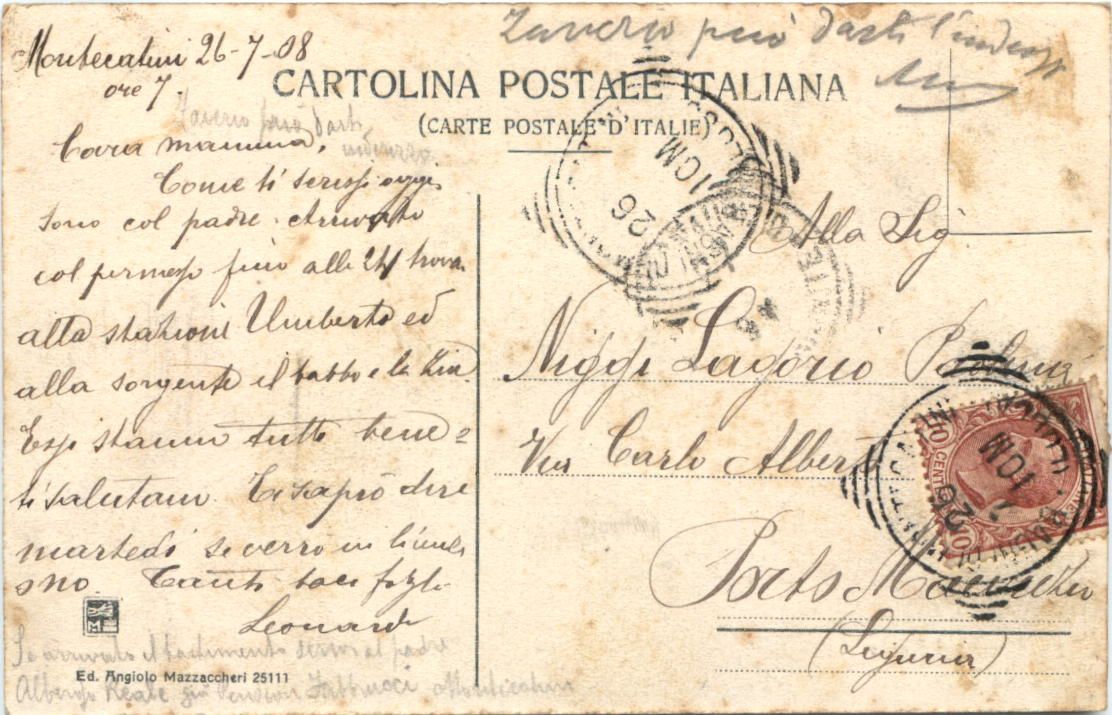 Saverio può darti l'indirizzo
Montecatini 26-7-08
ore 7.
CARTOLINA POSTALE ITALIANA
(CARTE POSTALE D'ITALIE)
Saverio può darti
indirizzo
Cara mamma,
Come ti scrissi oggi
sono col padre. Arrivato
col permesso fino alle 24 trovai
alla stazione Umberto ed
alla sorgente il babbo e la zia.
Essi stanno tutti bene e
ti salutano. Ti saprò dire
martedì se verrò in
o no. Tanti baci figlio
Leonardo
Se arrivato il bastimento scrivi al padre
Ed. Angiolo Mazzaccheri 25111
Albergo Reale già Pension Fabbrucci Montecatini
Alla Sig.
Niggi Lagorio Paolina
Via Carlo Alberto
Porto Maurizio
(Liguria)
26
10M
26
10M
10 CENT